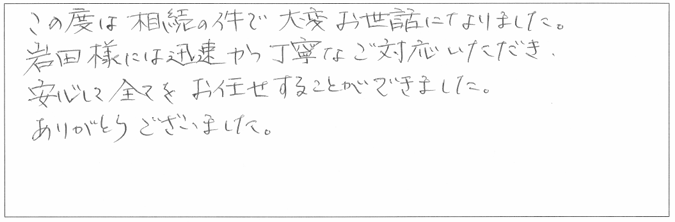 この度は相続の件で大変お世話になりました。
岩田様には迅速かつ丁寧なご対応いただき、
安心して全てをお任せすることができました。
ありがとうございました。